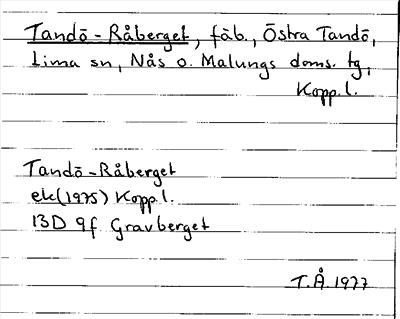 Tandö-Råberget, fäb., Östra Tandö,
Lima sn, Nås o. Malungs doms. tg,
Kopp.l.
Tandö-Råberget
ek(1975) Kopp.l.
13D 9f Gravberget
T.Å 1977